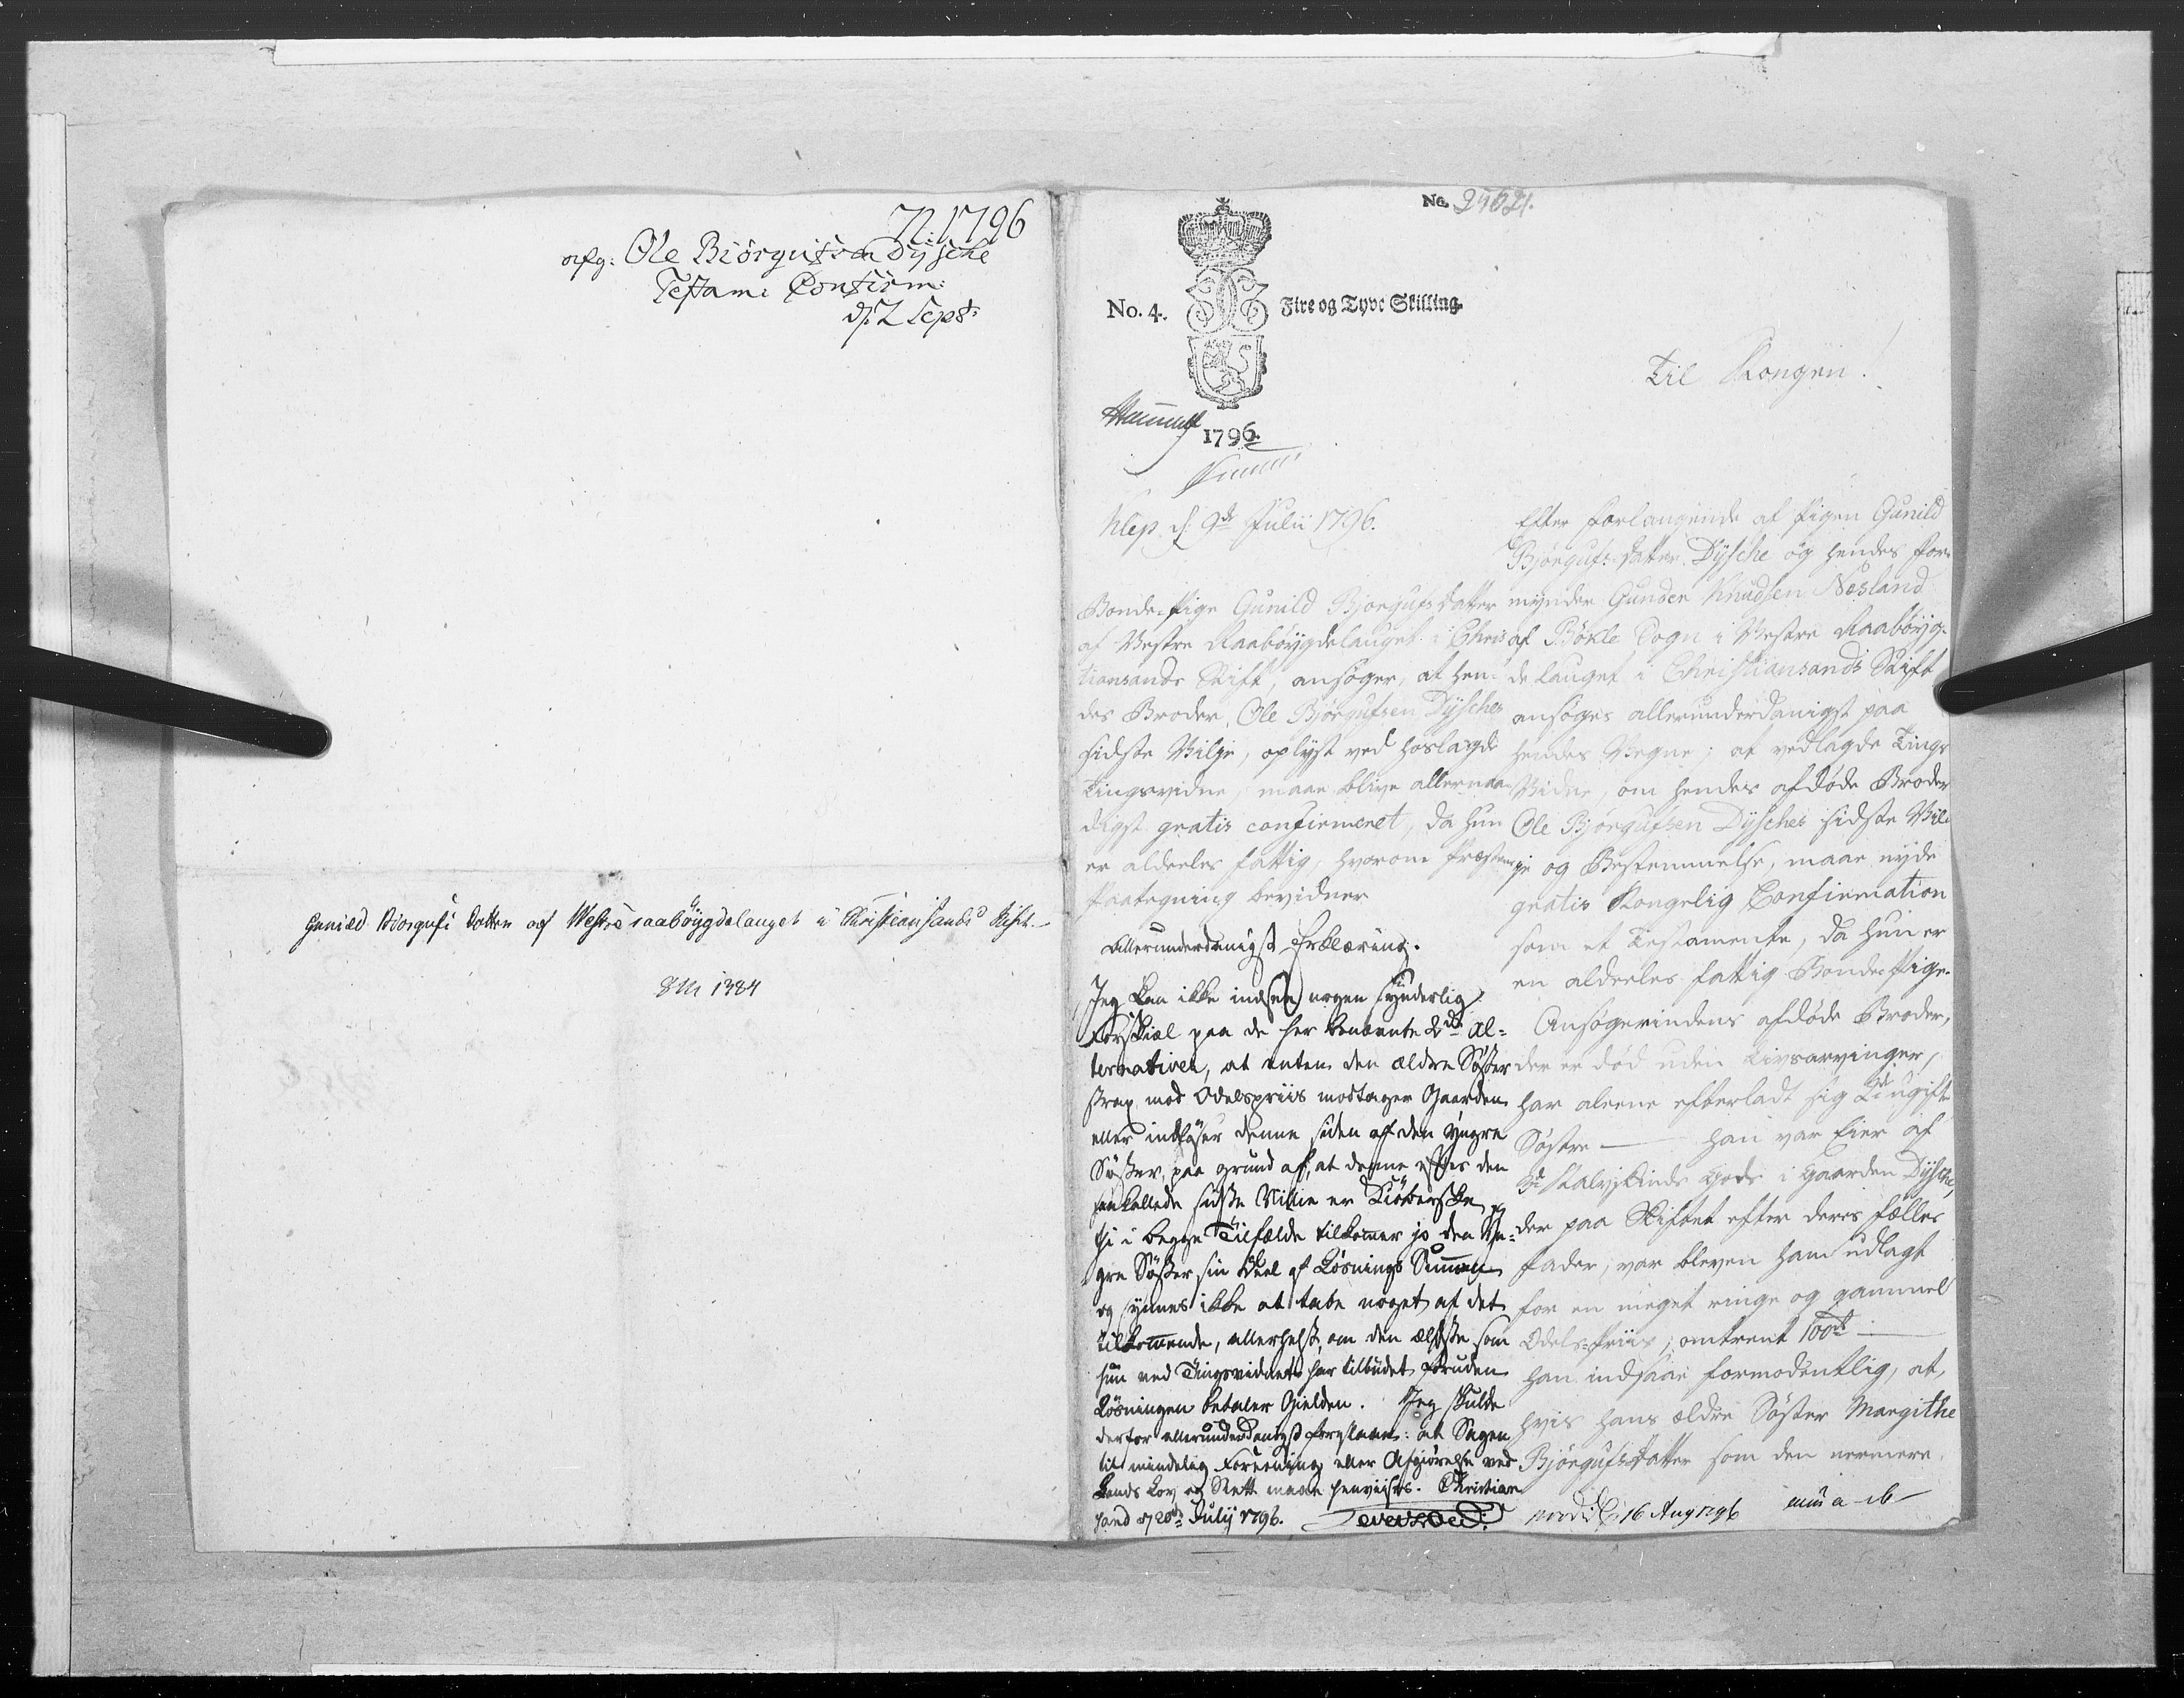 N: 1796
afg: Ole Biörgufsen Dysche
Testam: Confirm:
d. 2 Sept:
Gunild Biörgufs Datter af Westre raabøygdelauget i Christiansands Stift.
8 M 1384
No. 24621.
No. 4. Fire og Tyve Skilling
1796.
Til Kongen!
Klep d: 9de Julii 1796.
Bonde-Pige Gunild Bjørgufsdatter
af Vestre Raabøygdelauget i Chris
tiansands Stift, ansøger, at hen-
des Broder, Ole Bjørgufsen Dysches
sidste Vilje, oplyst ved hoslagde
Tingsvidne, maae blive allernaa-
digst gratis confirmeret, da hun
er aldeeles fattig, hvorom Præstens
Paategning bevidner
Allerunderdanigst Erklæring.
Jeg kan ikke indsee nogen synderlig
Forskiæl paa de her benævnte 2de Al-
ternativer, at enten den ældre Søster
strax mod Odelspriis modtager Gaarden
eller indløser denne siden af den yngre
Søster, paa grund af, at denne efter den
saakallede sidste Villie er Kiøberske,
thi i begge Tilfælde tilkommer jo den Yn-
gre Søster sin Deel af Løsnings Summen
og synes ikke at tabe noget af det
tilkommende, allerhelst, om den ælste som
hun ved Tingsvidnet har tilbudet foruden
Løsningen betaler Gielden. Jeg skulde
derfor allerunderdanigst foreslaae: at Sagen
til mindelig Foreening eller Afgiørelse ved
Lands Lov og Rett maae henviises. Christian
sand d 20de July 1796.
Efter Forlangende af Pigen Gunild
Bjørgufs-Datter Dysche og hendes For-
mynder Gunder Knudsen Næsland
af Bøkle Sogn i Vestre Raabøyg-
delauget i Christiansands Stift
ansøges allerunderdanigst paa
hendes Vegne; at vedlagde Tings
Vidne, om hendes afdøde Broder
Ole Bjørgufsen Dysches sidste Vil-
je og Bestemmelse, maae nyde
gratis Kongelig Confirmation
som et Testamente, da hun er
en aldeeles fattig Bonde-Pige.
Ansøgerindens afdøde Broder,
der er død uden Livsarvinger,
har aleene efterladt sig 2de ugifte
Søstre — han var Eier af
3de Kalvskinds Gods i Gaarden Dysche,
der paa Skiftet efter deres fælles
Fader, var bleven ham udlagt
for en meget ringe og gammel
Odels-Priis, omtrent 100rd —
han indsaae formodentlig, at,
hvis hans ældre Søster Margithe
Bjørgufsdatter som den nermere
16 Aug 1796